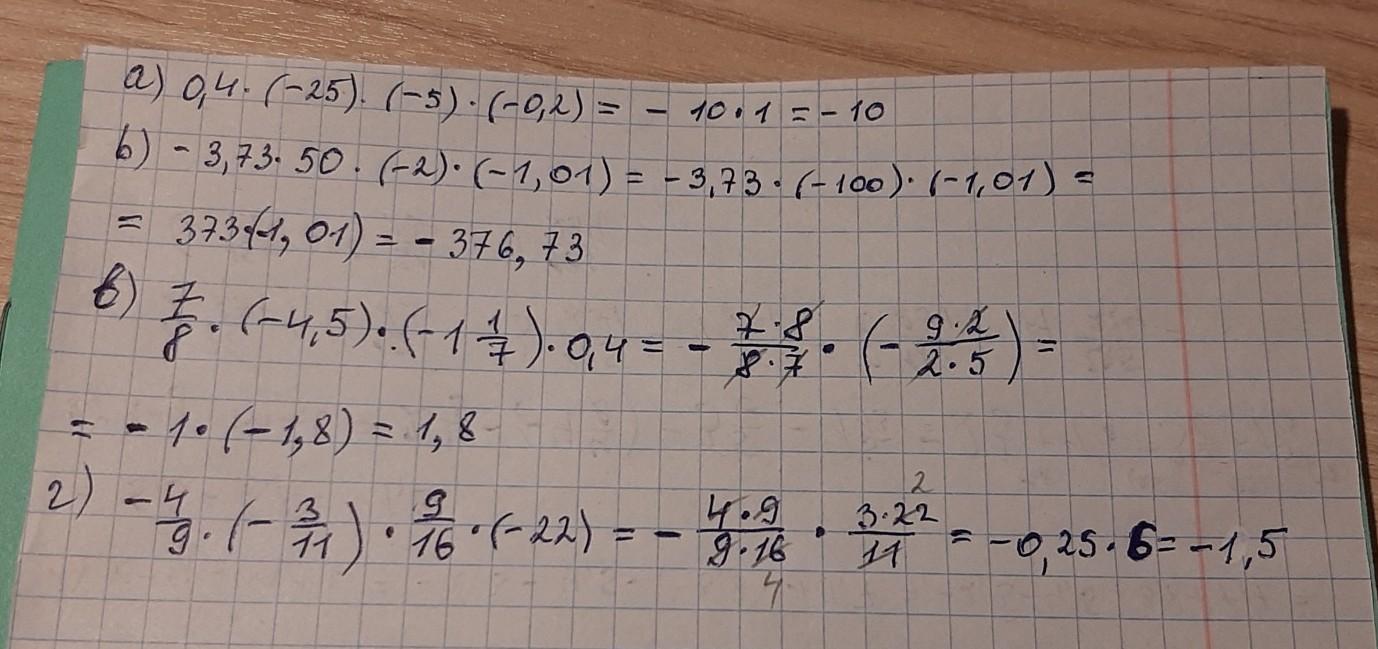 а) 0,4 · (-25) · (-5) · (-0,2) = - 10 · 1 = - 10
b) - 3,73 · 50 · (-2) · (-1,01) = - 3,73 · (-100) · (-1,01) =
= 373 · (-1,01) = - 376,73
в) 7/8 · (-4,5) · (-1 1/7) · 0,4 = - 7·8/8·7 · (- 9·2/2·5) =
= - 1 · (-1,8) = 1,8
г) - 4/9 · (- 3/11) · 9/16 · (-22) = - 4·9/9·16 4 · 3·22 2/11 = -0,25 · 6 = -1,5